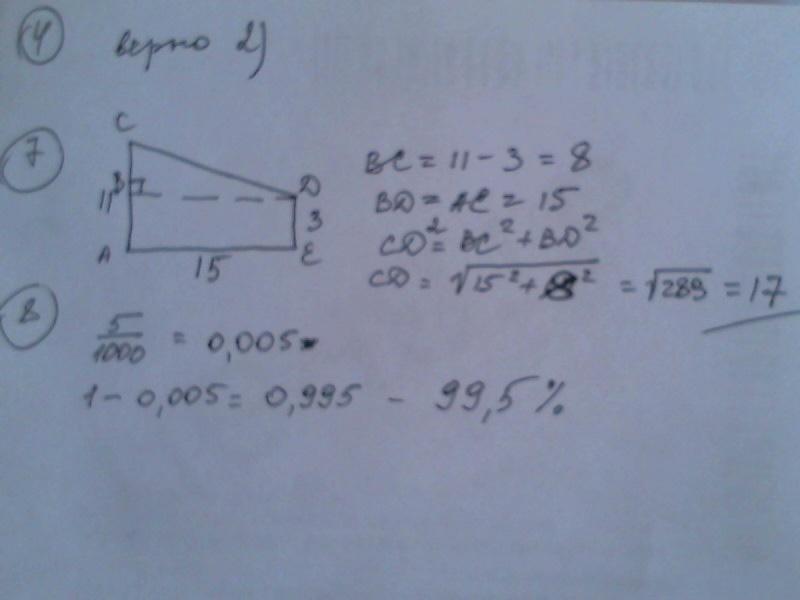 4 верно 2)
7
C
B
D
11
3
A
E
15
BC = 11 - 3 = 8
BD = AE = 15
CD² = BC² + BD²
CD = √15² + 8² = √289 = 17
8
5/1000 = 0,005
1 - 0,005 = 0,995 - 99,5 %